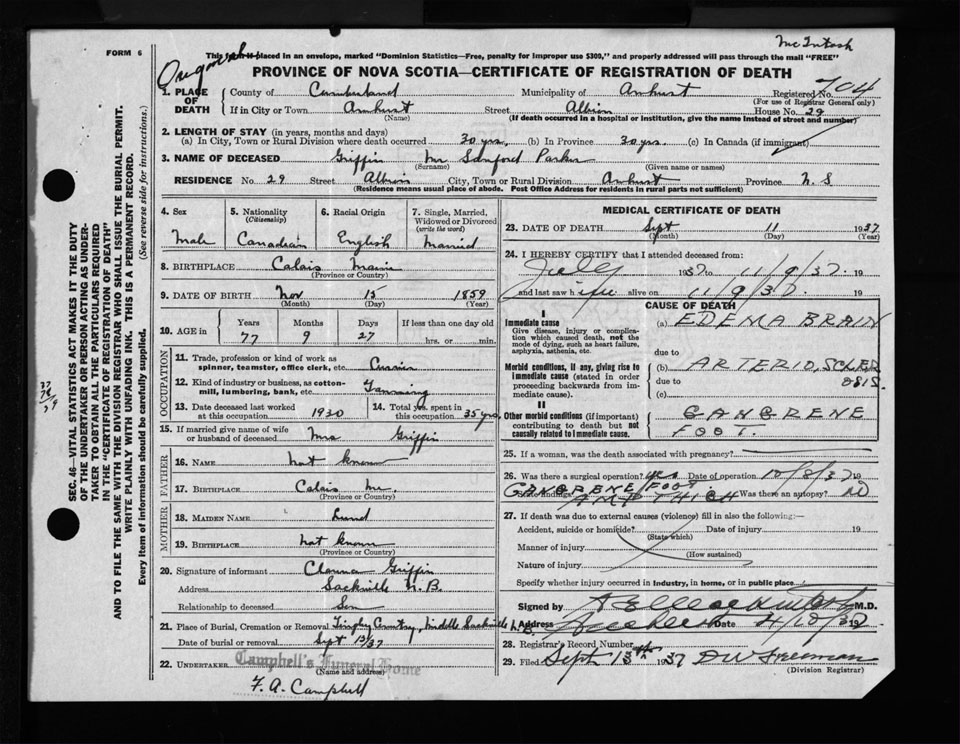 McIntosh
FORM 6
This form if placed in an envelope, marked "Dominion Statistics—Free, penalty for improper use $300," and properly addressed will pass through the mail "FREE"
PROVINCE OF NOVA SCOTIA—CERTIFICATE OF REGISTRATION OF DEATH
1. PLACE OF DEATH
County of Cumberland Municipality of Amherst Registered No. 704
(For use of Registrar General only)
If in City or Town Amherst Street Albion House No. 29
(Name) (If death occurred in a hospital or institution, give the name instead of street and number)
2. LENGTH OF STAY (in years, months and days)
(a) In City, Town or Rural Division where death occurred 30 yrs. (b) In Province 30 yrs. (c) In Canada (if immigrant)
3. NAME OF DECEASED Griffin Mr Sanford Parker
(Surname) (Given name or names)
RESIDENCE No. 29 Street Albion City, Town or Rural Division Amherst Province N. S
(Residence means usual place of abode. Post Office Address for residents in rural parts not sufficient)
SEC. 46—VITAL STATISTICS ACT MAKES IT THE DUTY
OF THE UNDERTAKER OR PERSON ACTING AS UNDER-
TAKER TO OBTAIN ALL THE PARTICULARS REQUIRED
IN THE "CERTIFICATE OF REGISTRATION OF DEATH"
AND TO FILE THE SAME WITH THE DIVISION REGISTRAR WHO SHALL ISSUE THE BURIAL PERMIT.
WRITE PLAINLY WITH UNFADING INK. THIS IS A PERMANENT RECORD.
Every item of information should be carefully supplied. (See reverse side for instructions.)
4. Sex 5. Nationality 6. Racial Origin 7. Single, Married,
(Citizenship) Widowed or Divorced
(write the word)
Male Canadian English Married
8. BIRTHPLACE Calais Maine
(Province or Country)
9. DATE OF BIRTH Nov 15 1859
(Month) (Day) (Year)
10. AGE in Years Months Days If less than one day old
77 9 27 hrs. or min.
OCCUPATION
11. Trade, profession or kind of work as
spinner, teamster, office clerk, etc.
12. Kind of industry or business, as cotton-
mill, lumbering, bank, etc. Tanning
13. Date deceased last worked
at this occupation 1930
14. Total yrs. spent in
this occupation 35 yrs
15. If married give name of wife
or husband of deceased Mrs Griffin
FATHER
16. NAME not known
17. BIRTHPLACE Calais Me.
(Province or Country)
MOTHER
18. MAIDEN NAME Lund
19. BIRTHPLACE not known
(Province or Country)
20. Signature of informant Griffin
Address Sackville N. B.
Relationship to deceased Son
21. Place of Burial, Cremation or Removal Middle Sackville N.B.
Date of burial or removal Sept 13/37
22. UNDERTAKER Campbell's Funeral Home
(Name and address)
F. A. Campbell
MEDICAL CERTIFICATE OF DEATH
23. DATE OF DEATH Sept 11 1937
(Month) (Day) (Year)
24. I HEREBY CERTIFY that I attended deceased from:
July 1937 to 11/9/37 19
and last saw h alive on 11/9/37 19
CAUSE OF DEATH
I
Immediate cause
Give disease, injury or complica-
tion which caused death, not the
mode of dying, such as heart failure,
asphyxia, asthenia, etc.
(a) EDEMA BRAIN
due to
Morbid conditions, if any, giving rise to
immediate cause (stated in order
proceeding backwards from im-
mediate cause).
(b) ARTERIO, SCLER
OSIS.
due to
(c)
II
Other morbid conditions (if important)
contributing to death but not
causally related to immediate cause.
GANGRENE
FOOT.
25. If a woman, was the death associated with pregnancy?
26. Was there a surgical operation? yes Date of operation 10/8/37 19
State findings GANGRENE FOOT Was there an autopsy? NO
AMP THIGH
27. If death was due to external causes (violence) fill in also the following:—
Accident, suicide or homicide? Date of injury 19
(State which)
Manner of injury
(How sustained)
Nature of injury
Specify whether injury occurred in industry, in home, or in public place
Signed by M.D.
Address Date 4/10/37 19
28. Registrar's Record Number
29. Filed Sept 13th 1937
(Division Registrar)